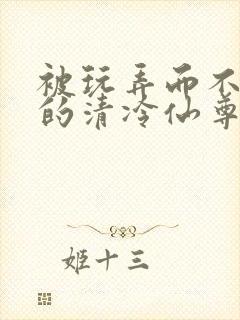 被玩弄而不
的清冷仙尊
姬十三